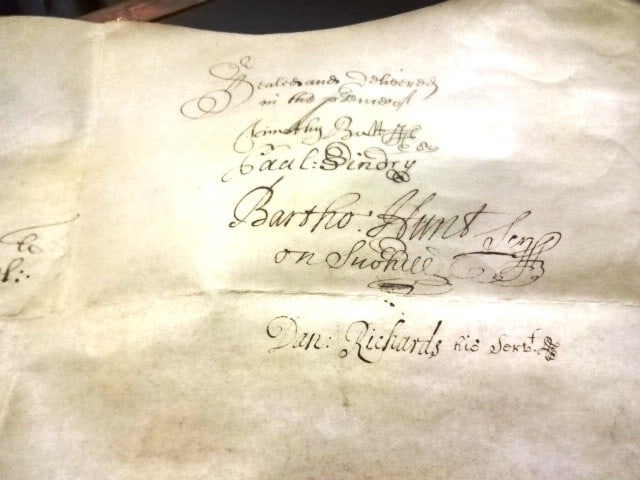 Sealed and Delivered
in the p'sence of
Timothy Butt
Paul: Dindry
Bartho: Hunt Sen
on
Dan: Richards his Servt.